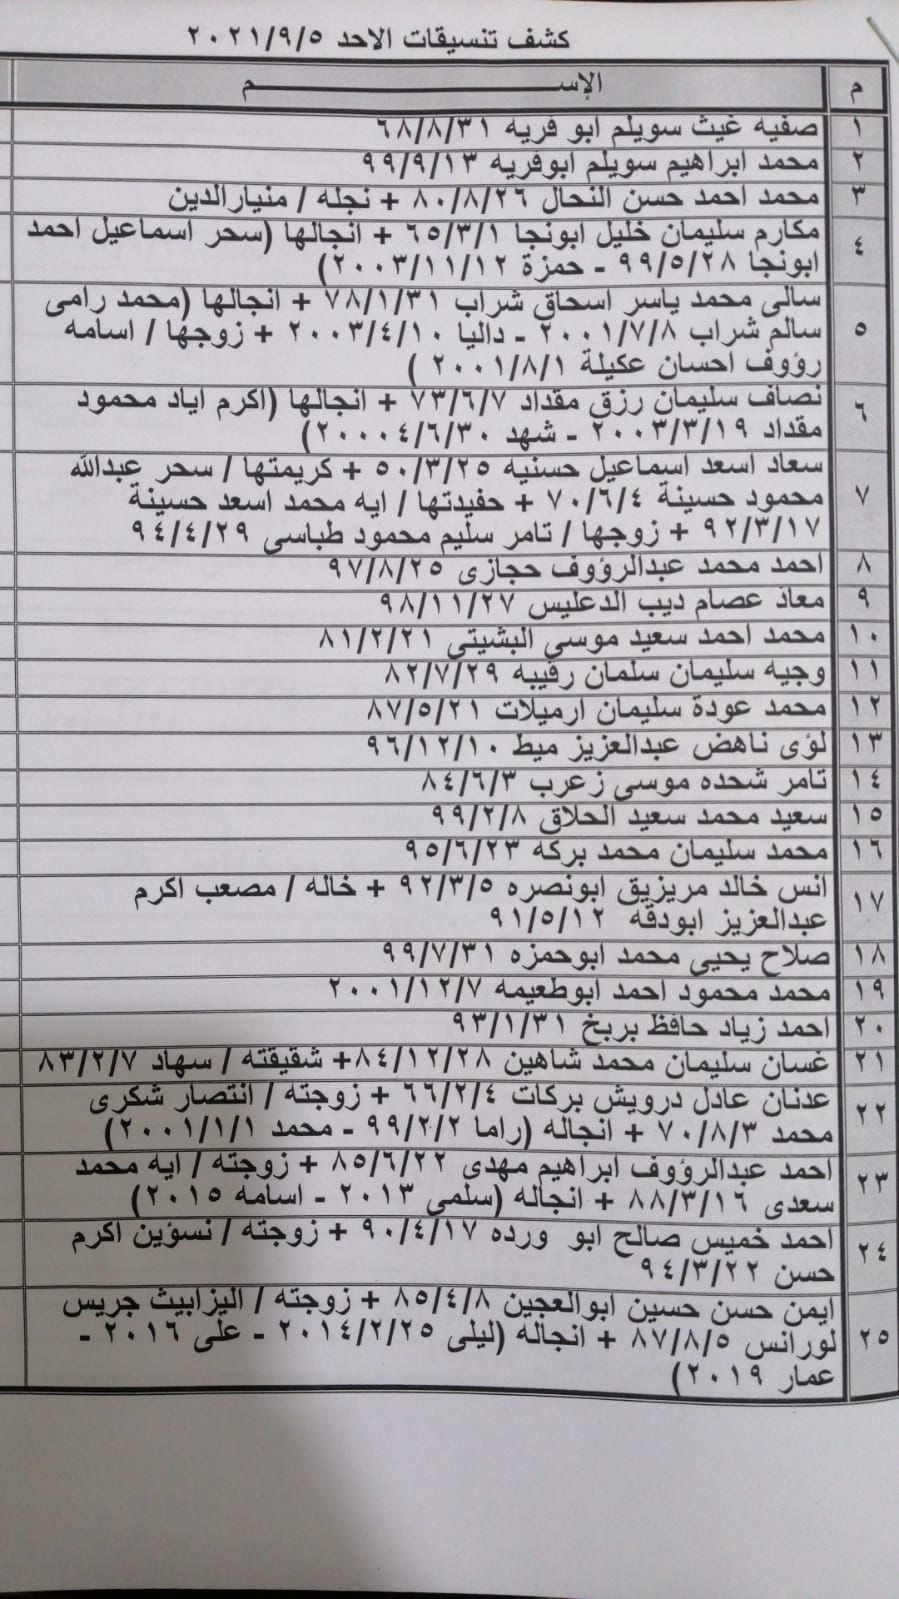 كشف تنسيقات الاحد ٢٠٢١/٩/٥
م
الإســـــــــــــــــم
١
صفيه غيث سويلم ابو فريه ٦٨/٨/٣١
٢
محمد ابراهيم سويلم ابوفريه ٩٩/٩/١٣
٣
محمد احمد حسن النحال ٨٠/٨/٢٦ + نجله / منيارالدين
٤
مكارم سليمان خليل ابونجا ٦٥/٣/١ + انجالها (سحر اسماعيل احمد
ابونجا ٩٩/٥/٢٨ - حمزة ٢٠٠٣/١١/١٢)
٥
سالى محمد ياسر اسحاق شراب ٧٨/١/٣١ + انجالها (محمد رامى
سالم شراب ٢٠٠١/٧/٨ - داليا ٢٠٠٣/٤/١٠ + زوجها / اسامه
رؤوف احسان عكيلة ٢٠٠١/٨/١ )
٦
نصاف سليمان رزق مقداد ٧٣/٦/٧ + انجالها (اكرم اياد محمود
مقداد ٢٠٠٣/٣/١٩ - شهد ٢٠٠٠٤/٦/٣٠)
٧
سعاد اسعد اسماعيل حسنيه ٥٠/٣/٢٥ + كريمتها / سحر عبدالله
محمود حسينة ٧٠/٦/٤ + حفيدتها / ايه محمد اسعد حسينة
٩٢/٣/١٧ + زوجها / تامر سليم محمود طباسى ٩٤/٤/٢٩
٨
احمد محمد عبدالرؤوف حجازى ٩٧/٨/٢٥
٩
معاذ عصام ديب الدعليس ٩٨/١١/٢٧
١٠
محمد احمد سعيد موسي البشيتي ٨١/٢/٢١
١١
وجيه سليمان سلمان رقيبه ٨٢/٧/٢٩
١٢
محمد عودة سليمان ارميلات ٨٧/٥/٢١
١٣
لؤى ناهض عبدالعزيز ميط ٩٦/١٢/١٠
١٤
تامر شحده موسى زعرب ٨٤/٦/٣
١٥
سعيد محمد سعيد الحلاق ٩٩/٢/٨
١٦
محمد سليمان محمد بركه ٩٥/٦/٢٣
١٧
انس خالد مريزيق ابونصره ٩٢/٣/٥ + خاله / مصعب اكرم
عبدالعزيز ابودقه ٩١/٥/١٢
١٨
صلاح يحيى محمد ابوحمزه ٩٩/٧/٣١
١٩
محمد محمود احمد ابوطعيمه ٢٠٠١/١٢/٧
٢٠
احمد زياد حافظ بربخ ٩٣/١/٣١
٢١
غسان سليمان محمد شاهين ٨٤/١٢/٢٨+ شقيقته / سهاد ٨٣/٢/٧
٢٢
عدنان عادل درويش بركات ٦٦/٢/٤ + زوجته / انتصار شكرى
محمد ٧٠/٨/٣ + انجاله (راما ٩٩/٢/٢ - محمد ٢٠٠١/١/١)
٢٣
احمد عبدالرؤوف ابراهيم مهدى ٨٥/٦/٢٢ + زوجته / ايه محمد
سعدى ٨٨/٣/١٦ + انجاله (سلمى ٢٠١٣ - اسامه ٢٠١٥)
٢٤
احمد خميس صالح ابو ورده ٩٠/٤/١٧ + زوجته / نسؤين اكرم
حسن ٩٤/٣/٢٢
٢٥
ايمن حسن حسين ابوالعجين ٨٥/٤/٨ + زوجته / اليزابيث جريس
لورانس ٨٧/٨/٥ + انجاله (ليلى ٢٠١٤/٢/٢٥ - على ٢٠١٦ -
عمار ٢٠١٩)